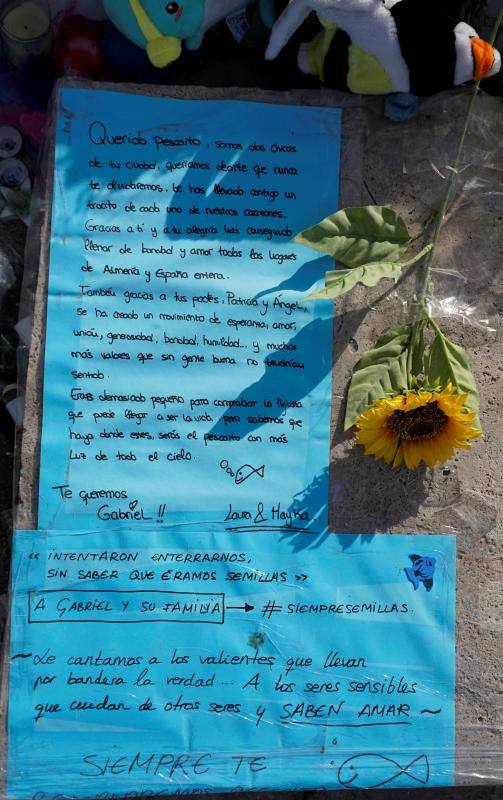 Querido Pescaito, somos dos chicas
de tu ciudad, queríamos decirte que nunca
te olvidaremos, te has llevado contigo un
trocito de cada uno de nuestros corazones.
Gracias a tí y a tu alegría has conseguido
llenar de bondad y amor todos los lugares
de Almería y España entera.
También gracias a tus padres, Patricia y Ángel,
se ha creado un movimiento de esperanza, amor,
unión, generosidad, bondad, humildad... y muchos
más valores que sin gente buena no tendrían
sentido.
Eras demasiado pequeño para comprobar lo injusta
que puede llegar a ser la vida, pero sabemos que
haya donde estes, serás el pescaito con más
Luz de todo el cielo.
Te queremos
Gabriel!!
Laura & Mayka.
« INTENTARON ENTERRARNOS,
SIN SABER QUE ÉRAMOS SEMILLAS »
A GABRIEL Y SU FAMILIA → # SIEMPRESEMILLAS.
~ Le cantamos a los valientes que llevan
por bandera la verdad... A los seres sensibles
que cuidan de otros seres y SABEN AMAR ~
SIEMPRE TE